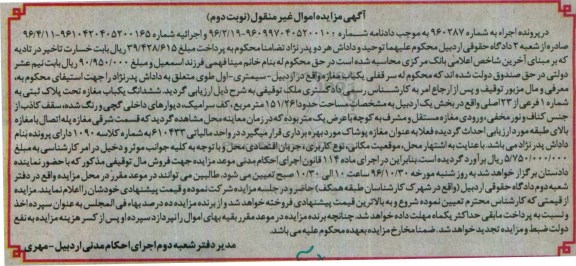 آگهی مزایده اموال غیر منقول (نوبت دوم)
در پرونده اجراء به شماره ۹۶۰۲۸۷ به موجب دادنامه شماره ۹۶۰۹۹۷۰۴۰۵۲۰۰۱۰۰ - ۹۶/۲/۱۹ و اجرائیه شماره ۹۶۱۰۴۲۰۴۰۵۲۰۰۱۶۵ - ۹۶/۴/۱۱
صادره از شعبه ۲ دادگاه حقوقی اردبیل محکوم علیهما توحید و داداش هر دو پدر نژاد تضامنا محکوم به پرداخت مبلغ ۳۹/۴۲۸/۶۱۵ ریال بابت خسارت تاخیر در تادیه
که بر مبنای آخرین شاخص اعلامی بانک مرکزی محاسبه شده است در حق محکوم له بنام خانم مینا فهمی فرزند اسمعیل و مبلغ ۹۰/۹۵۰/۰۰۰ ریال بابت نیم عشر
دولتی در حق صندوق دولت شده اند که محکوم له سر قفلی یکباب مغازه واقع در اردبیل - سیمتری - اول طوی متعلق به داداش پدر نژاد را جهت استیفای محکوم به،
معرفی و مال مزبور توقیف و پس از ارجاع امر به کارشناس رسمی دادگستری ملک توقیفی به شرح ذیل ارزیابی گردید. ششدانگ یکباب مغازه تحت پلاک ثبتی به
شماره ۱ فرعی از ۲۳ اصلی واقع در بخش یک اردبیل به مشخصات مساحت حدودا ۱۵۱/۲۶ متر مربع، کف سرامیک، دیوارهای داخلی گچی و رنگ شده، سقف کاذب از
جنس کناف و نور مخفی، ورودی مغازه مستقل و مشرف به کوچه با عرض یک متر بوده که در زمان معاینه محل مشاهده گردید که قسمت شرقی مغازه پله اتصال با مغازه
بالای طبقه مورد ارزیابی احداث گردیده فعلا به عنوان مغازه پوشاک مورد بهره برداری قرار میگیرد در واحد مالیاتی ۶۱۰۴۳۳ به شماره کلاسه ۱۰۹۰ دارای پرونده بنام
داداش پدر نژاد می باشد. با عنایت به اشتهار محل، موقعیت مکانی، نوع کاربری، جریان اقتصادی محل و با توجه به کلیه جوانب موثر و دخیل در امر کارشناسی به مبلغ
۵/۷۵۰/۰۰۰/۰۰۰ ریال برآورد گردیده است بنابراین در اجرای ماده ۱۱۴ قانون اجرای احکام مدنی موعد مزایده جهت فروش مال توقیفی مذکور که با حضور نماینده
دادستان برگزار خواهد شد به روز شنبه مورخه ۹۶/۱۰/۳۰ ساعت ۱۰ الی ۱۰/۳۰ صبح تعیین می شود. طالبین می توانند در موعد مقرر در محل مزایده واقع در دفتر
شعبه دوم دادگاه حقوقی اردبیل (واقع در شهرک کارشناسان طبقه همکف) حاضر و در جلسه مزایده شرکت نموده و قیمت پیشنهادی خودشان را اعلام نمایند. مزایده
از قیمتی که کارشناس محترم تعیین نموده شروع و به بالاترین قیمت پیشنهادی فروخته خواهد شد و از برنده مزایده ده درصد بهاء فی المجلس به عنوان سپرده اخذ
و نسبت به پرداخت مابقی حداکثر یکماه مهلت داده خواهد شد. چنانچه برنده مزایده در موعد مقرر بقیه بهای اموال را نپردازد سپرده او پس از کسر هزینه مزایده به نفع
دولت ضبط و مزایده تجدید خواهد شد. ضمنا مخارج مزایده بعهده محکوم علیه می باشد.
مدیر دفتر شعبه دوم اجرای احکام مدنی اردبیل - مهری